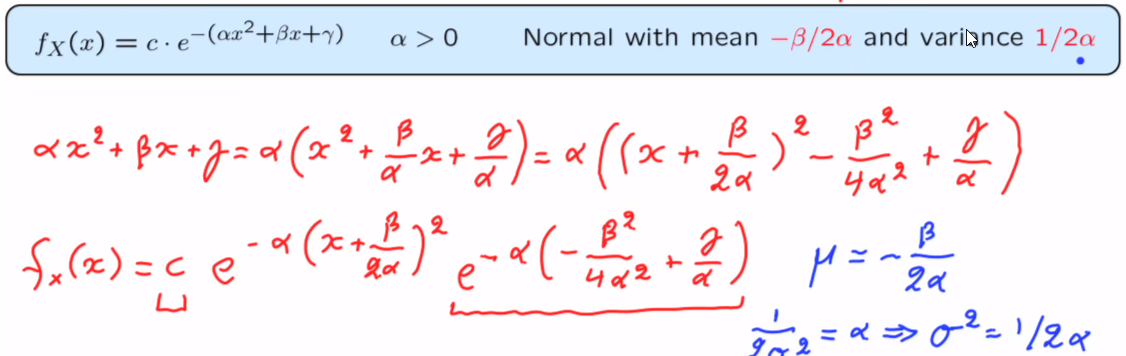 f_X(x) = c · e^{-(αx²+βx+γ)} α > 0 Normal with mean -β/2α and variance 1/2α
αx² + βx + γ = α(x² + β/α x + γ/α) = α((x + β/2α)² - β²/4α² + γ/α)
f_x(x) = c e^{-α(x + β/2α)²} e^{-α(-β²/4α² + γ/α)} μ = -β/2α
1/2σ² = α ⇒ σ² = 1/2α